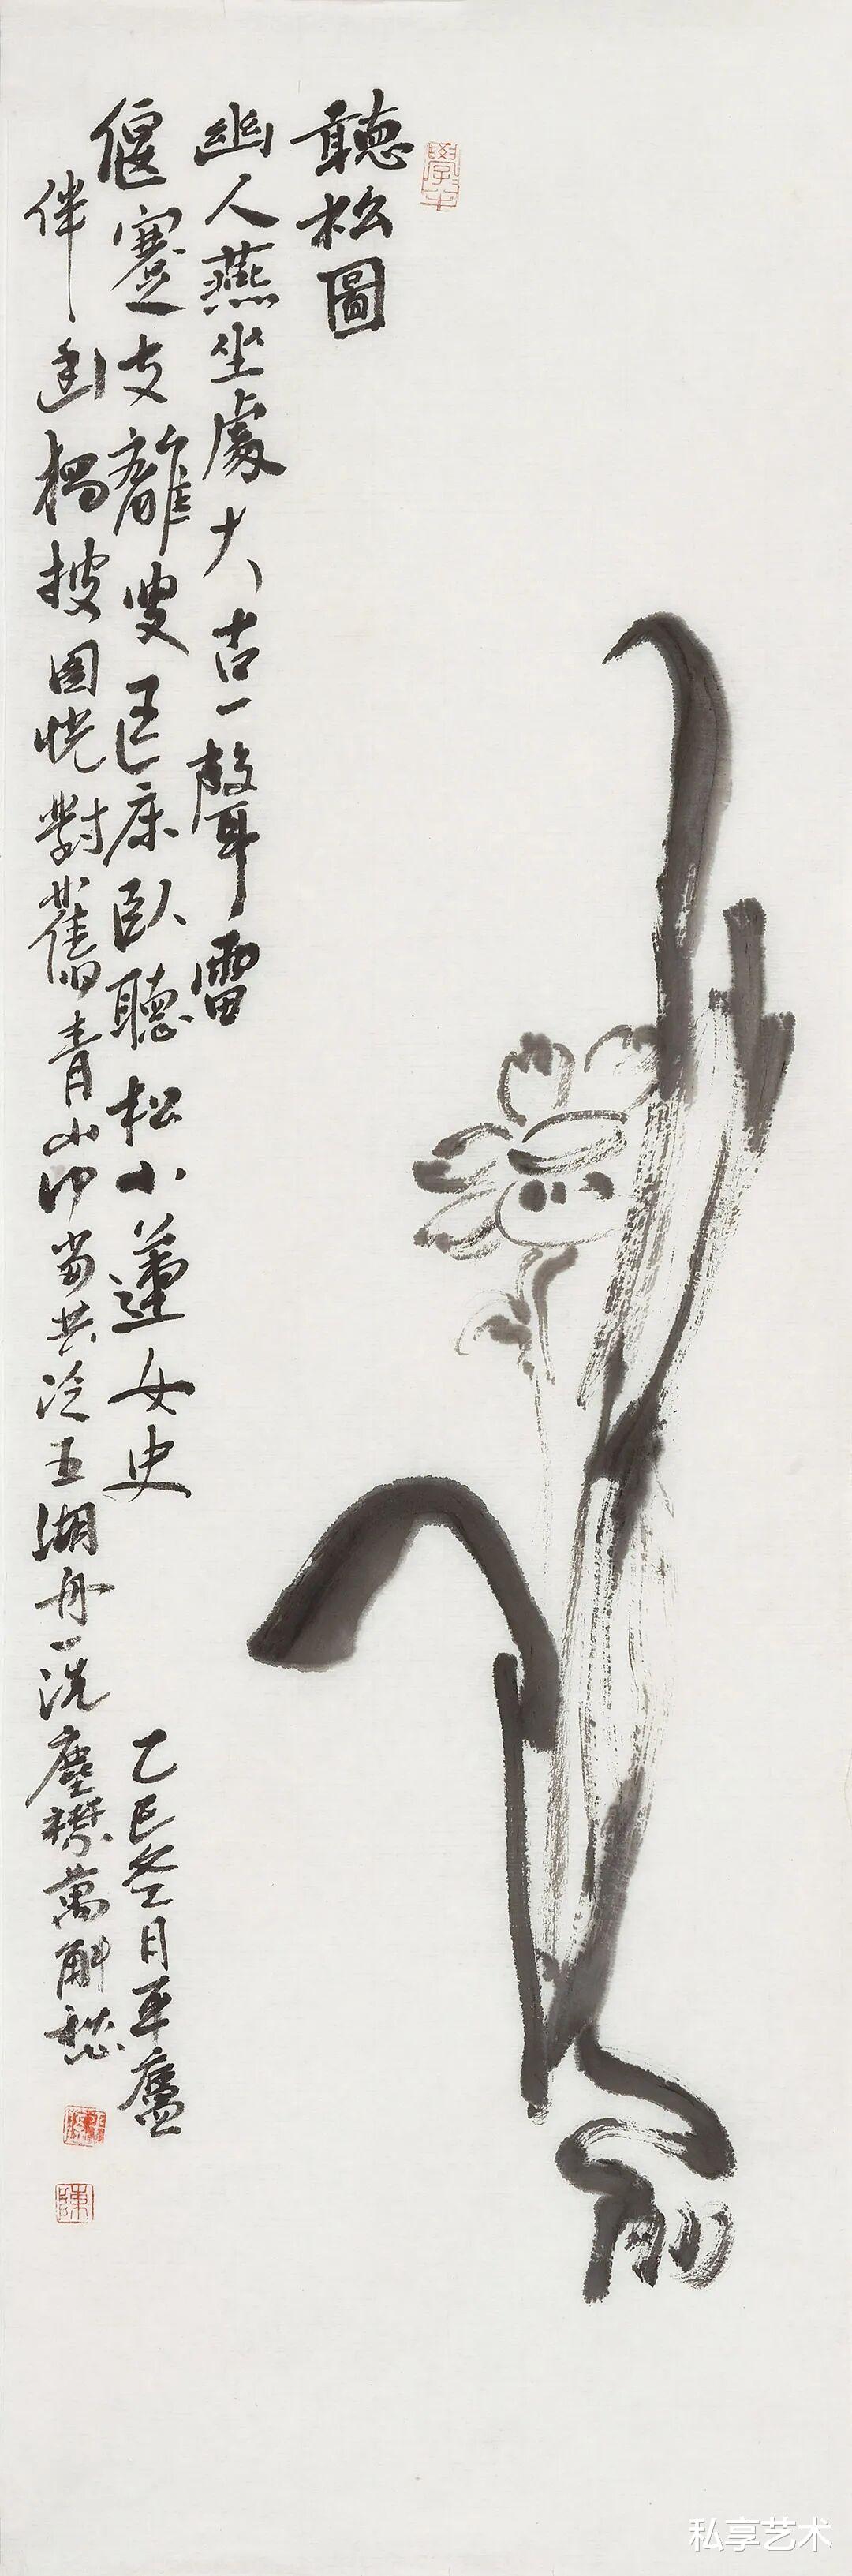 聽松圖
幽人燕坐處大古一聲雷
偃蹇支離叟匡床臥聽松小蓮女史
伴幽棲披圖恍對舊青山何當共泛五湖舟一洗塵襟萬斛愁
乙巳冬月平廬
陳
私享艺术